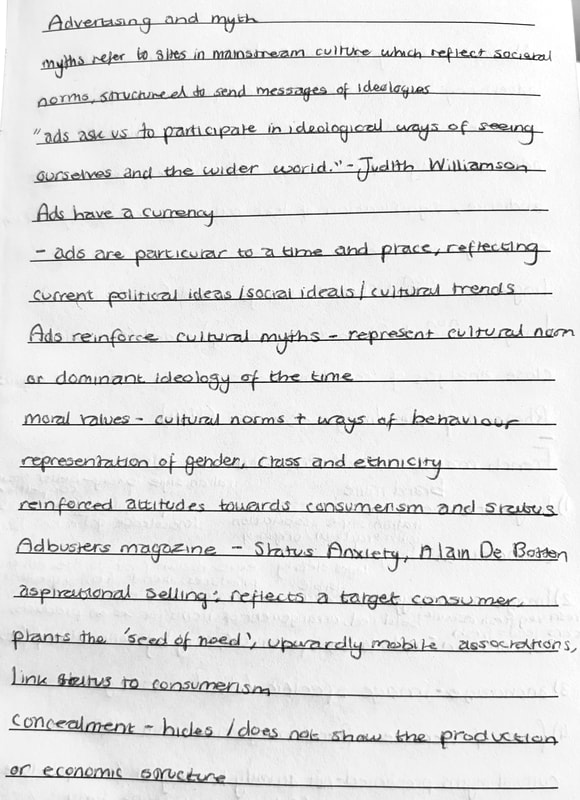 Advertising and myth
myths refer to sites in mainstream culture which reflect societal
norms, structured to send messages of ideologies
"ads ask us to participate in ideological ways of seeing
ourselves and the wider world." - Judith Williamson
Ads have a currency
- ads are particular to a time and place, reflecting
current political ideas / social ideals / cultural trends
Ads reinforce cultural myths - represent cultural norm
or dominant ideology of the time
moral values - cultural norms + ways of behaviour
representation of gender, class and ethnicity
reinforced attitudes towards consumerism and status
Adbusters magazine - Status Anxiety, Alain De Botton
aspirational selling: reflects a target consumer,
plants the 'seed of need', upwardly mobile associations,
link status to consumerism
concealment - hides / does not show the production
or economic structure